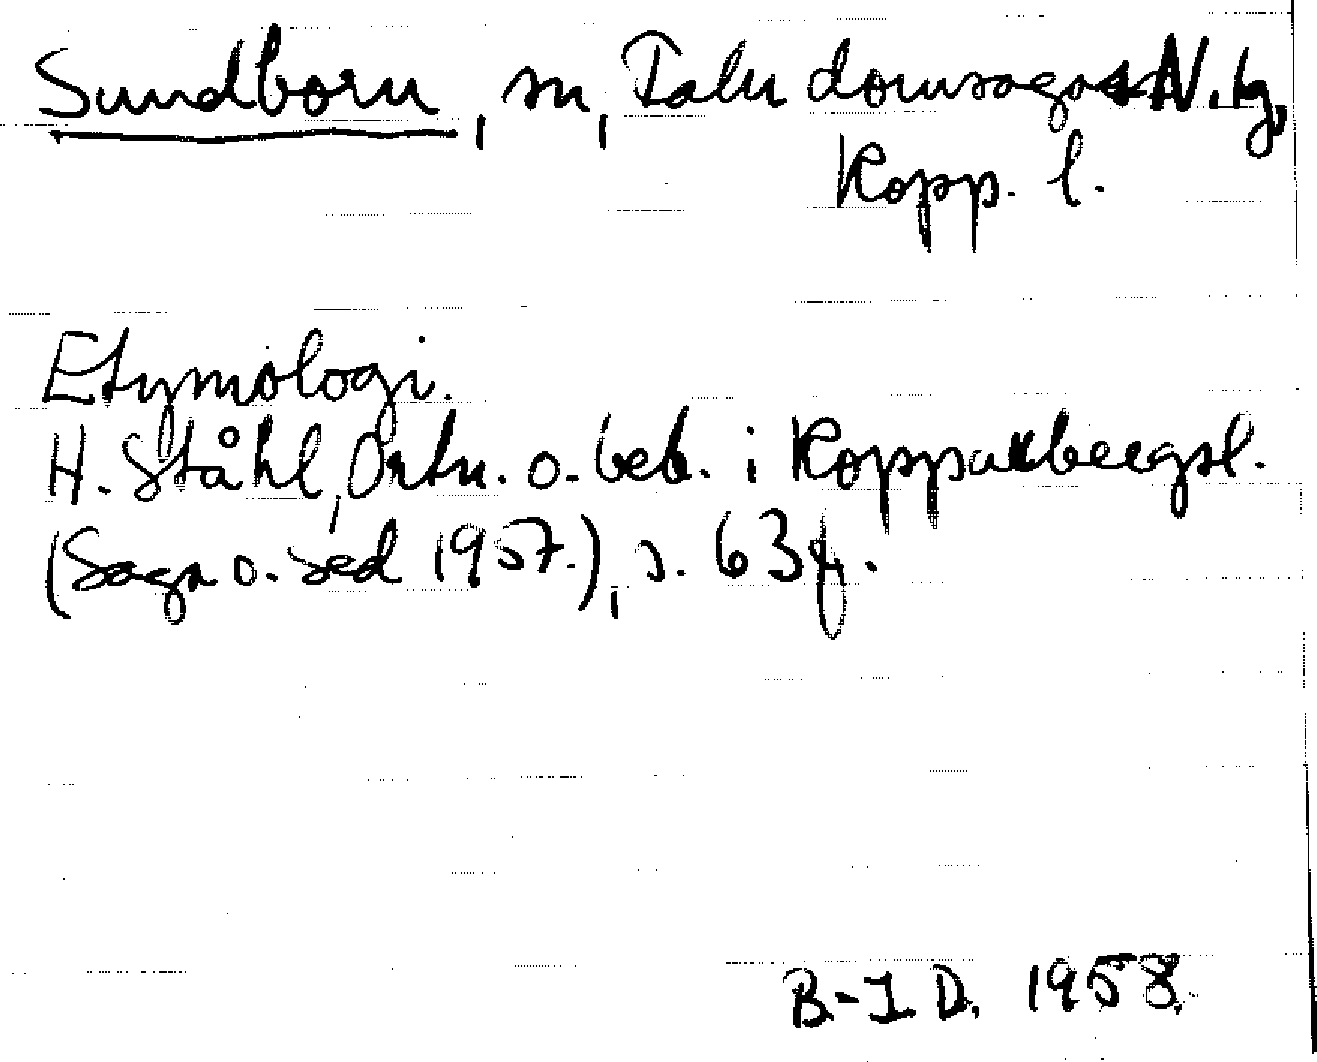 Sundborn, sn, Falu domsagas N. tg,
Kopp. l.
Etymologi.
H. Ståhl, Ortn. o. beb. i Kopparbergsl.
(Saga o. sed 1957.), s. 63 f.
B-I D. 1958.